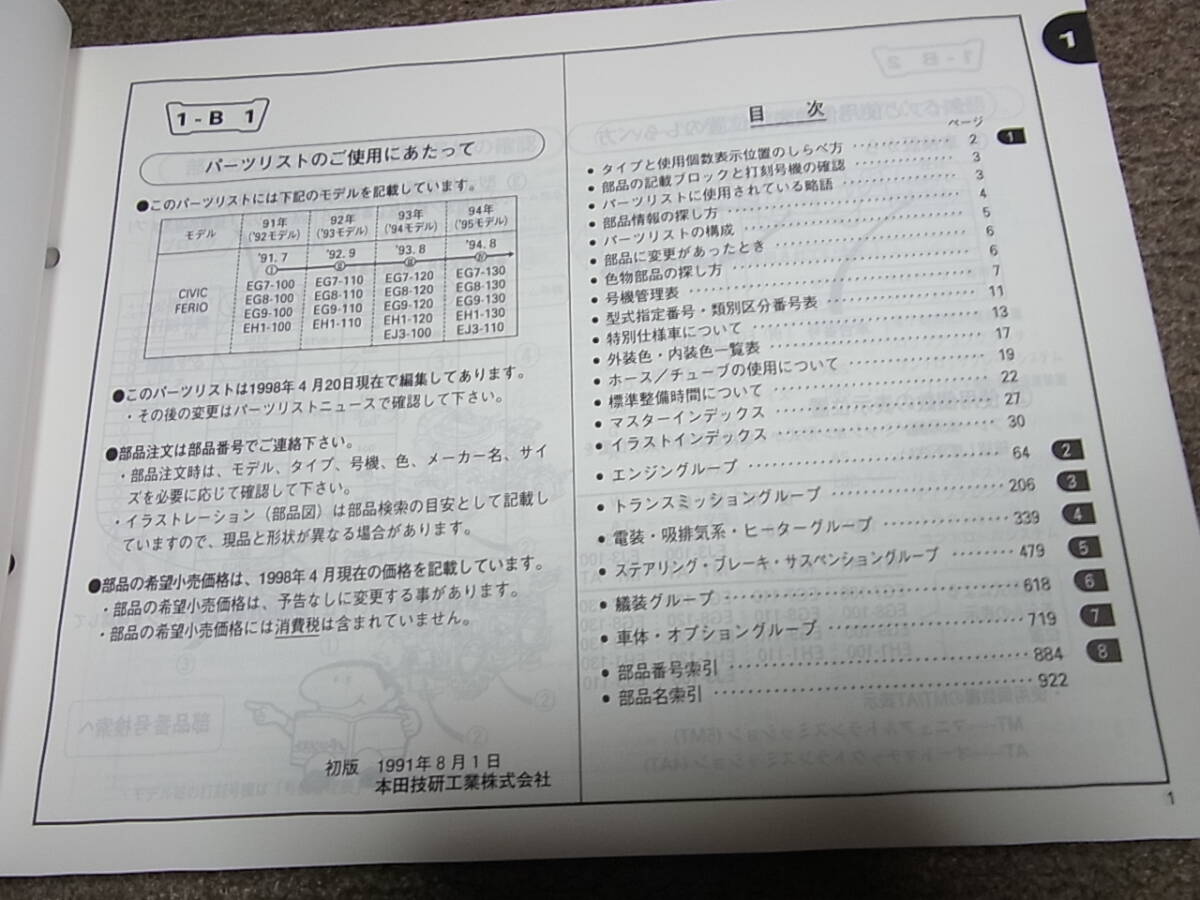 1
1-B 1
パーツリストのご使用にあたって
●このパーツリストには下記のモデルを記載しています。
モデル 91年 92年 93年 94年
('92モデル) ('93モデル) ('94モデル) ('95モデル)
'91. 7 '92. 9 '93. 8 '94. 8
CIVIC FERIO
EG7-100 EG7-110 EG7-120 EG7-130
EG8-100 EG8-110 EG8-120 EG8-130
EG9-100 EG9-110 EG9-120 EG9-130
EH1-100 EH1-110 EH1-120 EH1-130
EJ3-100 EJ3-110
●このパーツリストは1998年4月20日現在で編集してあります。
・その後の変更はパーツリストニュースで確認して下さい。
●部品注文は部品番号でご連絡下さい。
・部品注文時は、モデル、タイプ、号機、色、メーカー名、サイ
ズを必要に応じて確認して下さい。
・イラストレーション（部品図）は部品検索の目安として記載し
ていますので、現品と形状が異なる場合があります。
●部品の希望小売価格は、1998年4月現在の価格を記載しています。
・部品の希望小売価格は、予告なしに変更する事があります。
・部品の希望小売価格には消費税は含まれていません。
初版 1991年8月1日
本田技研工業株式会社
目 次
ページ
●タイプと使用個数表示位置のしらべ方 ‥‥‥ 2 1
●部品の記載ブロックと打刻号機の確認 ‥‥‥ 3
●パーツリストに使用されている略語 ‥‥‥ 3
●部品情報の探し方 ‥‥‥ 4
●パーツリストの構成 ‥‥‥ 5
●部品に変更があったとき ‥‥‥ 6
●色物部品の探し方 ‥‥‥ 6
●号機管理表 ‥‥‥ 7
●型式指定番号・類別区分番号表 ‥‥‥ 11
●特別仕様車について ‥‥‥ 13
●外装色・内装色一覧表 ‥‥‥ 17
●ホース／チューブの使用について ‥‥‥ 19
●標準整備時間について ‥‥‥ 22
●マスターインデックス ‥‥‥ 27
●イラストインデックス ‥‥‥ 30
●エンジングループ ‥‥‥ 64 2
●トランスミッショングループ ‥‥‥ 206 3
●電装・吸排気系・ヒーターグループ ‥‥‥ 339 4
●ステアリング・ブレーキ・サスペンショングループ ‥‥‥ 479 5
●艤装グループ ‥‥‥ 618 6
●車体・オプショングループ ‥‥‥ 719 7
●部品番号索引 ‥‥‥ 884 8
●部品名索引 ‥‥‥ 922
1